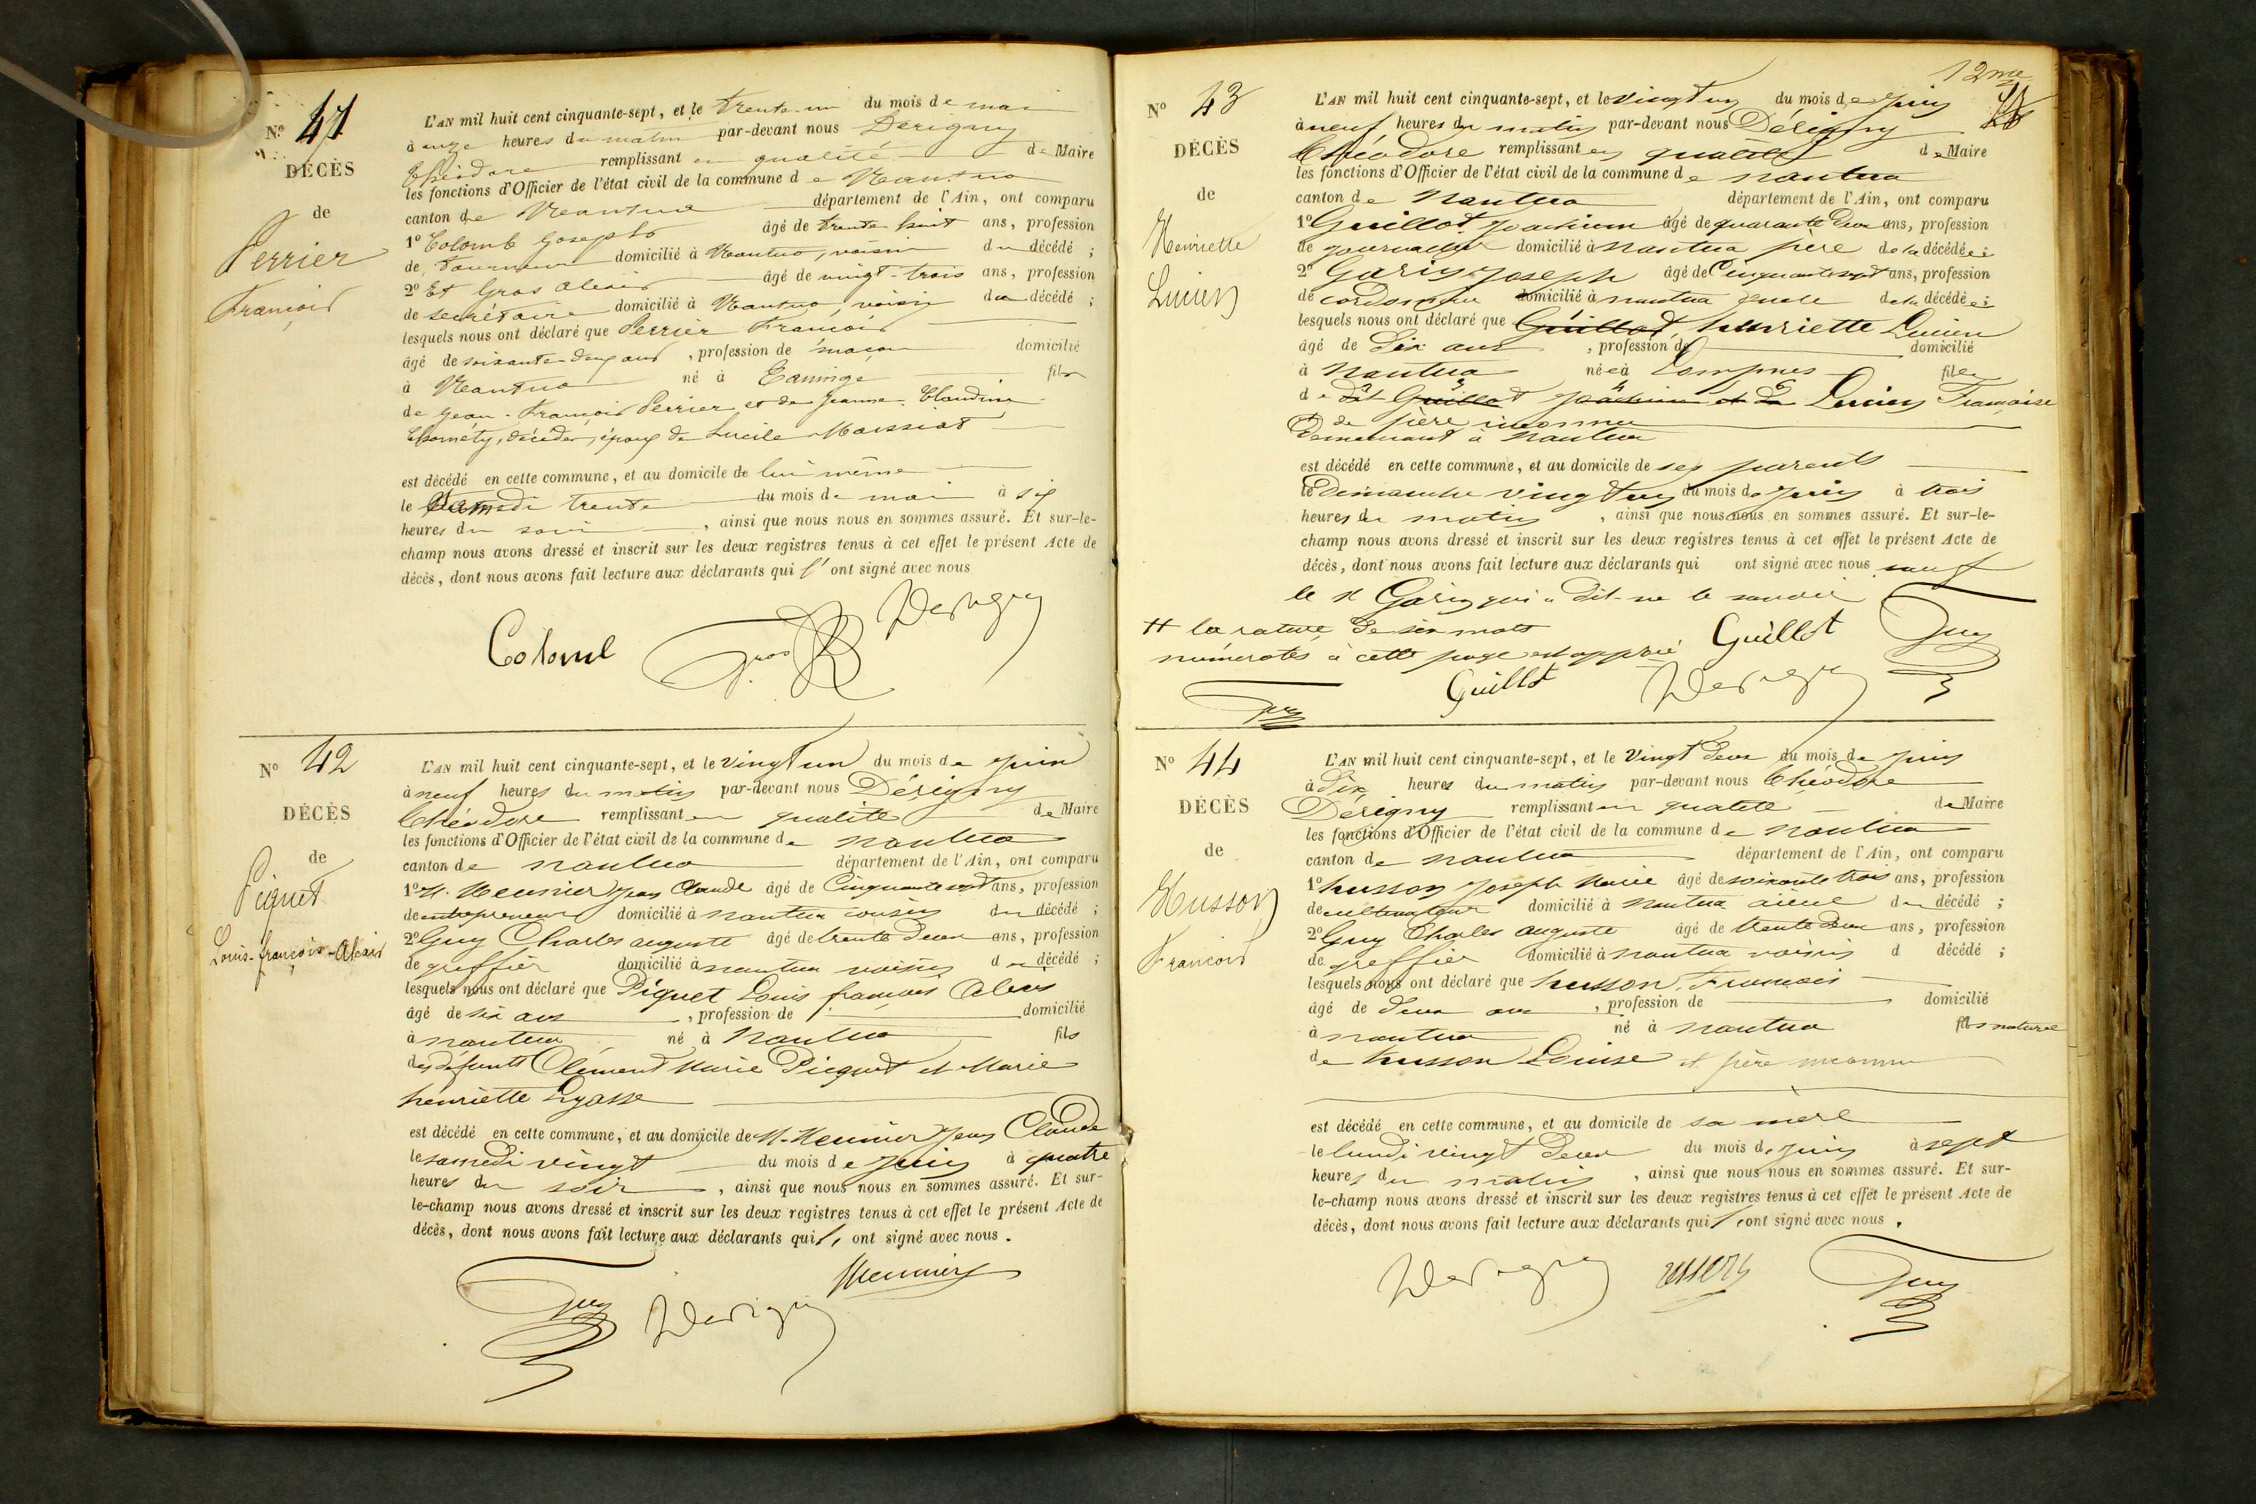 Nº 41
DÉCÈS
de
Perrier
François
L'AN mil huit cent cinquante-sept, et le trente-un du mois de mai
à onze heures du matin par-devant nous Dérigny
Théodore remplissant en qualité de Maire
les fonctions d'Officier de l'état civil de la commune de Nantua
canton de Nantua département de l'Ain, ont comparu
1º Colomb Joseph âgé de trente huit ans, profession
de Tourneur domicilié à Nantua, voisin du décédé ;
2º Et Gros Alexis âgé de vingt-trois ans, profession
de secrétaire domicilié à Nantua, voisin du décédé ;
lesquels nous ont déclaré que Perrier François
âgé de soixante-deux ans, profession de maçon domicilié
à Nantua né à fils
de Jean-François Perrier et de Jeanne-Claudine
décédés, époux de Lucile Moissiat
est décédé en cette commune, et au domicile de lui même
le Samedi trente du mois de mai à six
heures du soir, ainsi que nous nous en sommes assuré. Et sur-le-
champ nous avons dressé et inscrit sur les deux registres tenus à cet effet le présent Acte de
décès, dont nous avons fait lecture aux déclarants qui l' ont signé avec nous
Colomb Gros Derigny
Nº 42
DÉCÈS
de
Piquet
Louis-françois-Alexis
L'AN mil huit cent cinquante-sept, et le vingt un du mois de juin
à neuf heures du matin par-devant nous Dérigny
Théodore remplissant en qualité de Maire
les fonctions d'Officier de l'état civil de la commune de nantua
canton de nantua département de l'Ain, ont comparu
1º M. Meunier Jean Claude âgé de Cinquante sept ans, profession
de entrepreneur domicilié à nantua cousin du décédé ;
2º Guy Charles auguste âgé de trente deux ans, profession
de greffier domicilié à nantua voisin du décédé ;
lesquels nous ont déclaré que Piquet Louis françois Alexis
âgé de six ans, profession de domicilié
à nantua né à Nantua fils
des défunts Clément Marie Picquet et Marie
henriette Lyasse
est décédé en cette commune, et au domicile de M. Meunier Jean Claude
le samedi vingt du mois de juin à quatre
heures du soir, ainsi que nous nous en sommes assuré. Et sur-
le-champ nous avons dressé et inscrit sur les deux registres tenus à cet effet le présent Acte de
décès, dont nous avons fait lecture aux déclarants qui l' ont signé avec nous.
Guy Derigny Meunier
12me
Nº 43
DÉCÈS
de
Henriette
Lucien
L'AN mil huit cent cinquante-sept, et le vingt un du mois de juin
à neuf heures du matin par-devant nous Dérigny
Théodore remplissant en qualité de Maire
les fonctions d'Officier de l'état civil de la commune de nantua
canton de Nantua département de l'Ain, ont comparu
1º Guillot Joachim âgé de quarante deux ans, profession
de journalier domicilié à nantua père de la décédée ;
2º Garin Joseph âgé de Cinquante sept ans, profession
de cordonnier domicilié à nantua de la décédée ;
lesquels nous ont déclaré que Guillot, henriette Lucien
âgé de dix ans, profession de domicilié
à Nantua née à Lompnes fille
de dit Guillot Joachim et de Lucien Françoise
& de père inconnu
Demeurant à Nantua
est décédé en cette commune, et au domicile de ses parents
le Dimanche vingt un du mois de juin à trois
heures du matin, ainsi que nous nous en sommes assuré. Et sur-le-
champ nous avons dressé et inscrit sur les deux registres tenus à cet effet le présent Acte de
décès, dont nous avons fait lecture aux déclarants qui ont signé avec nous sauf
le Sr Garin qui a dit ne le savoir
la rature de six mots
numérotés à cette page est approuvé Guillot Guy
Guy Guillot Derigny
Nº 44
DÉCÈS
de
Husson
François
L'AN mil huit cent cinquante-sept, et le vingt deux du mois de juin
à dix heures du matin par-devant nous Théodore
Dérigny remplissant en qualité de Maire
les fonctions d'Officier de l'état civil de la commune de nantua
canton de nantua département de l'Ain, ont comparu
1º husson Joseph Marie âgé de soixante trois ans, profession
de cultivateur domicilié à Nantua aïeul du décédé ;
2º Guy Charles auguste âgé de trente deux ans, profession
de greffier domicilié à nantua voisin d décédé ;
lesquels nous ont déclaré que husson, François
âgé de deux ans, profession de domicilié
à nantua né à nantua fils naturel
de husson Louise et père inconnu
est décédé en cette commune, et au domicile de sa mère
le lundi vingt deux du mois de juin à sept
heures du matin, ainsi que nous nous en sommes assuré. Et sur-
le-champ nous avons dressé et inscrit sur les deux registres tenus à cet effet le présent Acte de
décès, dont nous avons fait lecture aux déclarants qui l' ont signé avec nous.
Derigny usson Guy